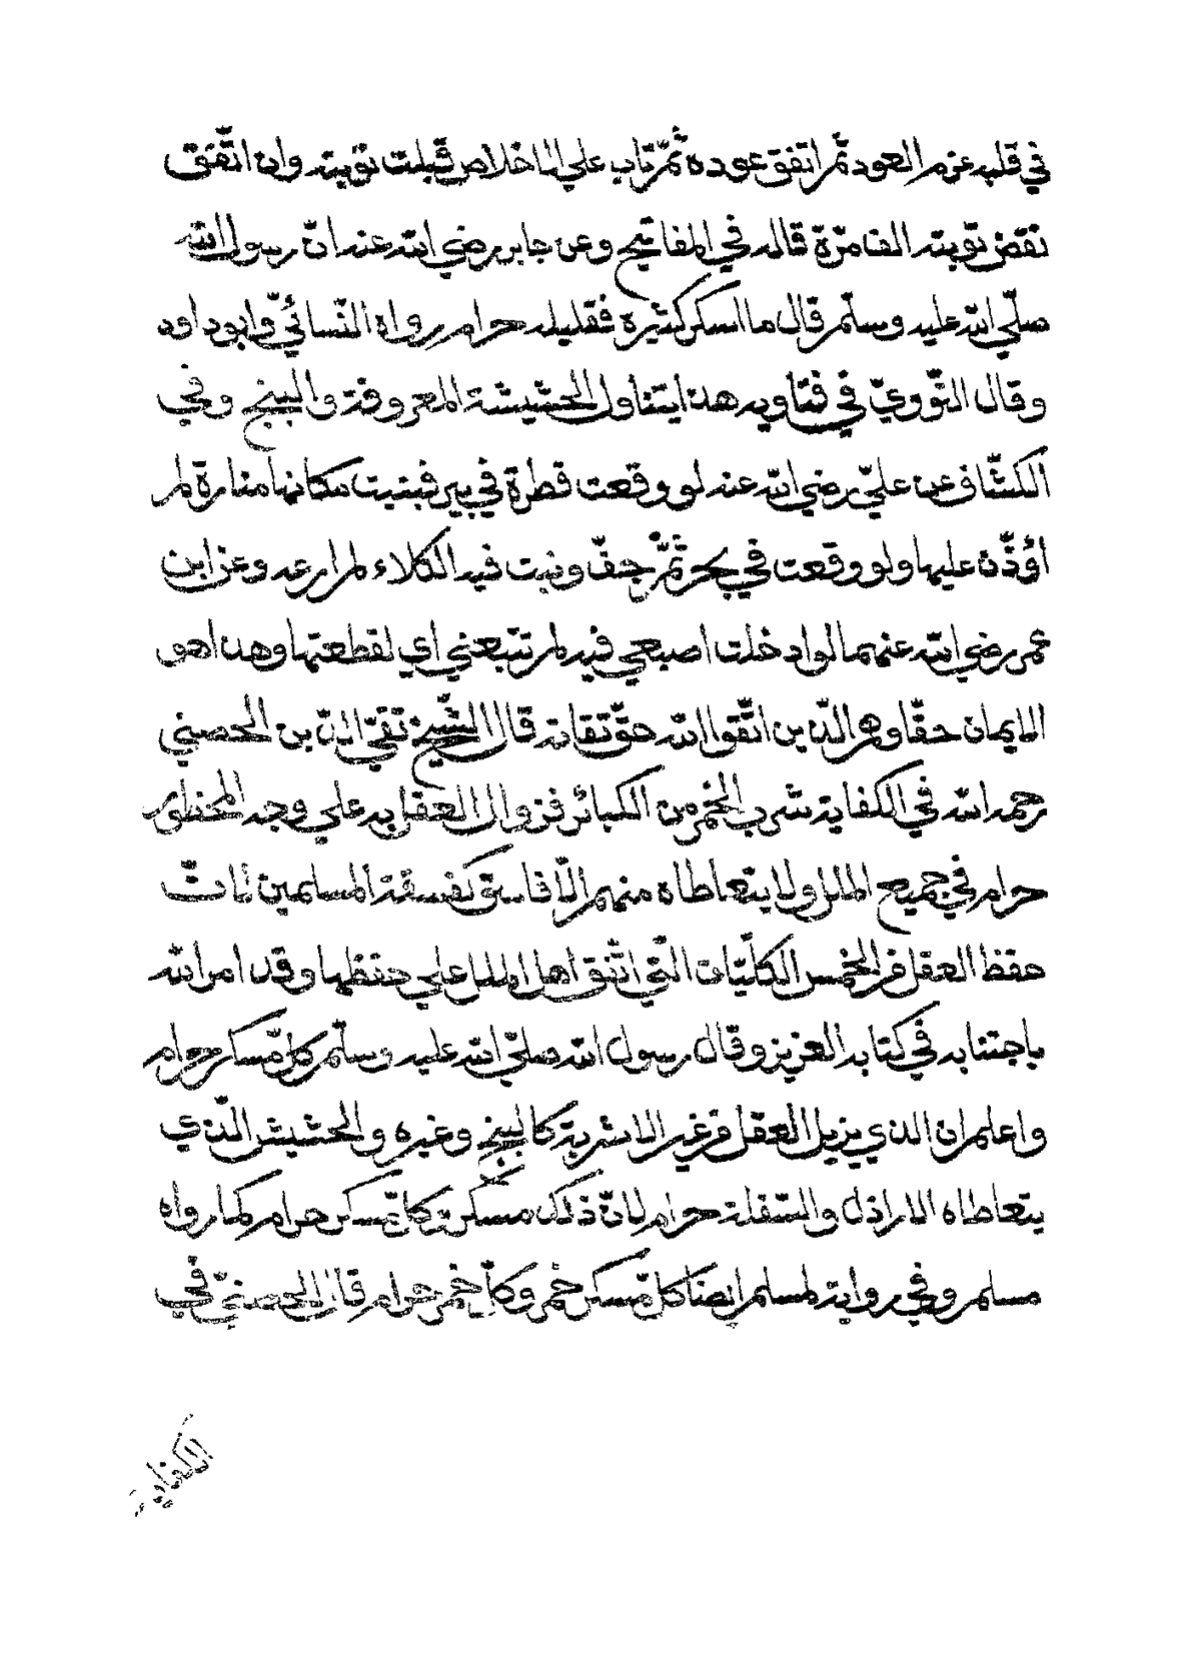 في قلبه عزم العود ثمّ اتفق عوده ثمّ تاب علي الاخلاص قبلت توبته وان اتّفق
نقض توبته الف مرّة قاله في المفاتيح وعن جابر رضي الله عنه انّ رسول الله
صلّي الله عليه وسلّم قال ما اسكر كثيره فقليله حرام رواه النّسائيّ وابو داود
وقال النّوويّ في فتاويه هذا يتناول الحشيشة المعروفة والبنج وفي
الكشّاف عن عليّ رضي الله عنه لو وقعت قطرة في بير فبنيت مكانها منارة لم
اؤذّن عليها ولو وقعت في بحر ثمّ جفّ ونبت فيه الكلاء لم ارعه وعن ابن
عمر رضي الله عنهما لو ادخلت اصبعي فيه لم تتبعني اي لقطعتها وهذا هو
الايمان حقّا وهم الّذين اتّقوا الله حقّ تقاته قال الشّيخ تقيّ الدّين الحصني
رحمه الله في الكفاية شرب الخمر من الكبائر فزوال العقل به علي وجه المحظور
حرام في جميع الملل ولا يتعاطاه منهم الّا فاسق كفسقة المسلمين لانّ
حفظ العقل من الخمس الكلّيّات الّتي اتّفق اهل الملل علي حفظها وقد امر الله
باجتنابه في كتابه العزيز وقال رسول الله صلّي الله عليه وسلّم كلّ مسكر حرام
واعلم ان الذي يزيل العقل من غير الاشربة كالبنج وغيره والحشيش الّذي
يتعاطاه الاراذل والسّفلة حرام لانّ ذلك مسكر وكلّ مسكر حرام كما رواه
مسلم وفي رواية لمسلم ايضا كلّ مسكر خمر وكلّ خمر حرام قال الحصنيّ في
الكفاية